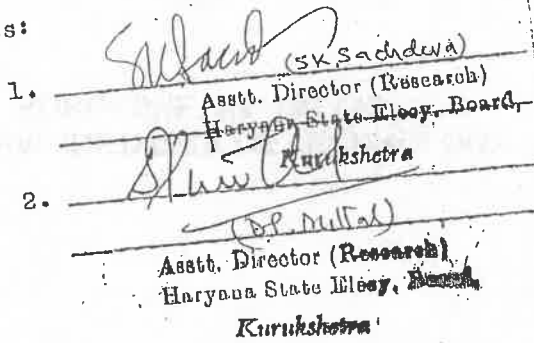 s:
1.
(S.K. Sachdeva)
Asstt. Director (Research)
Haryana State Elecy. Board,
Kurukshetra
2.
(D.P. Mittal)
Asstt. Director (Research)
Haryana State Elecy. Board,
Kurukshetra